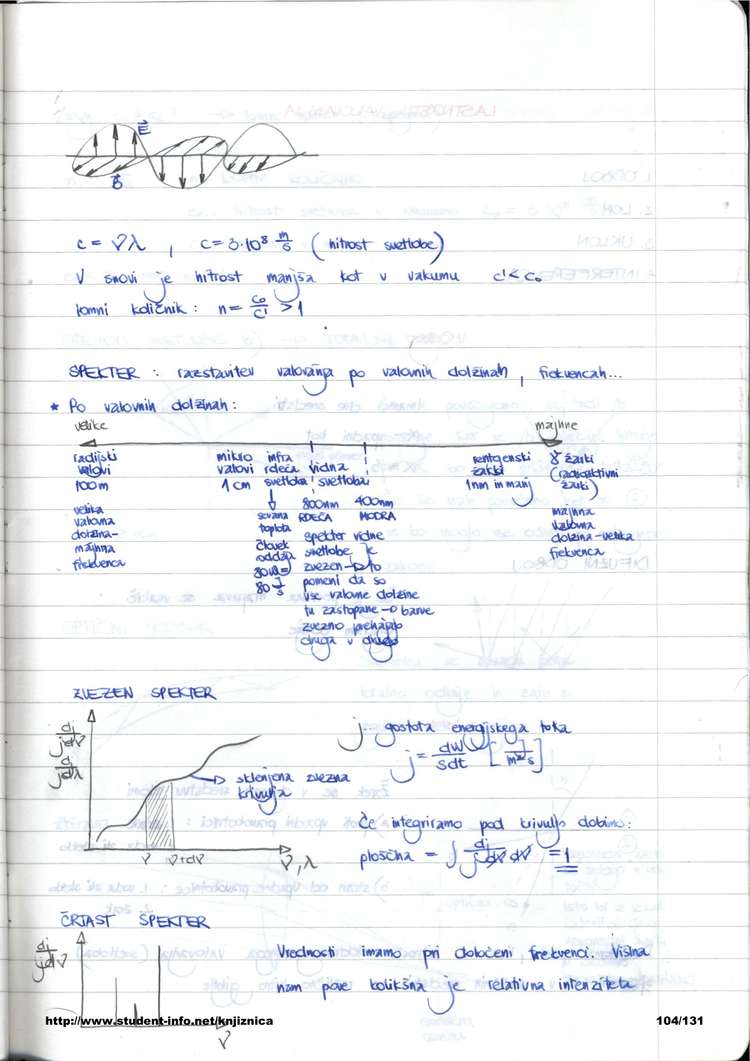 E
B
c = νλ , c = 3·10⁸ m/s (hitrost svetlobe)
V snovi je hitrost manjša kot v vakumu c' < c₀
lomni količnik: n = c₀/c' > 1
SPEKTER : razstavitev valovanja po valovnih dolžinah, frekvencah...
* Po valovnih dolžinah:
velike majhne
radijski valovi 100m
velika valovna dolžina - majhna frekvenca
mikro valovi 1cm
infra rdeča svetloba
sevana toplota
človek oddaja
80 J/s
vidna svetloba
800nm 400nm
RDEČA MODRA
spekter vidne
svetlobe je
zvezen → to
pomeni da so
vse valovne dolžine
tu zastopane → barve
zvezno prehajajo
druga v drugo
rentgenski žarki
1nm in manj
γ žarki
(radioaktivni žarki)
majhna valovna dolžina - velika frekvenca
ZVEZEN SPEKTER
dj/jdν
dj/jdλ
sklenjena zvezna krivulja
ν ν+dν ν, λ
j... gostota energijskega toka
j = dW/Sdt [J/m²s]
Če integriramo pod krivuljo dobimo:
ploščina = ∫ dj/jdν dν = 1
ČRTAST SPEKTER
dj/jdν
ν
Vrednosti imamo pri določeni frekvenci. Višina
nam pove kolikšna je relativna intenziteta
http://www.student-info.net/knjiznica 104/131